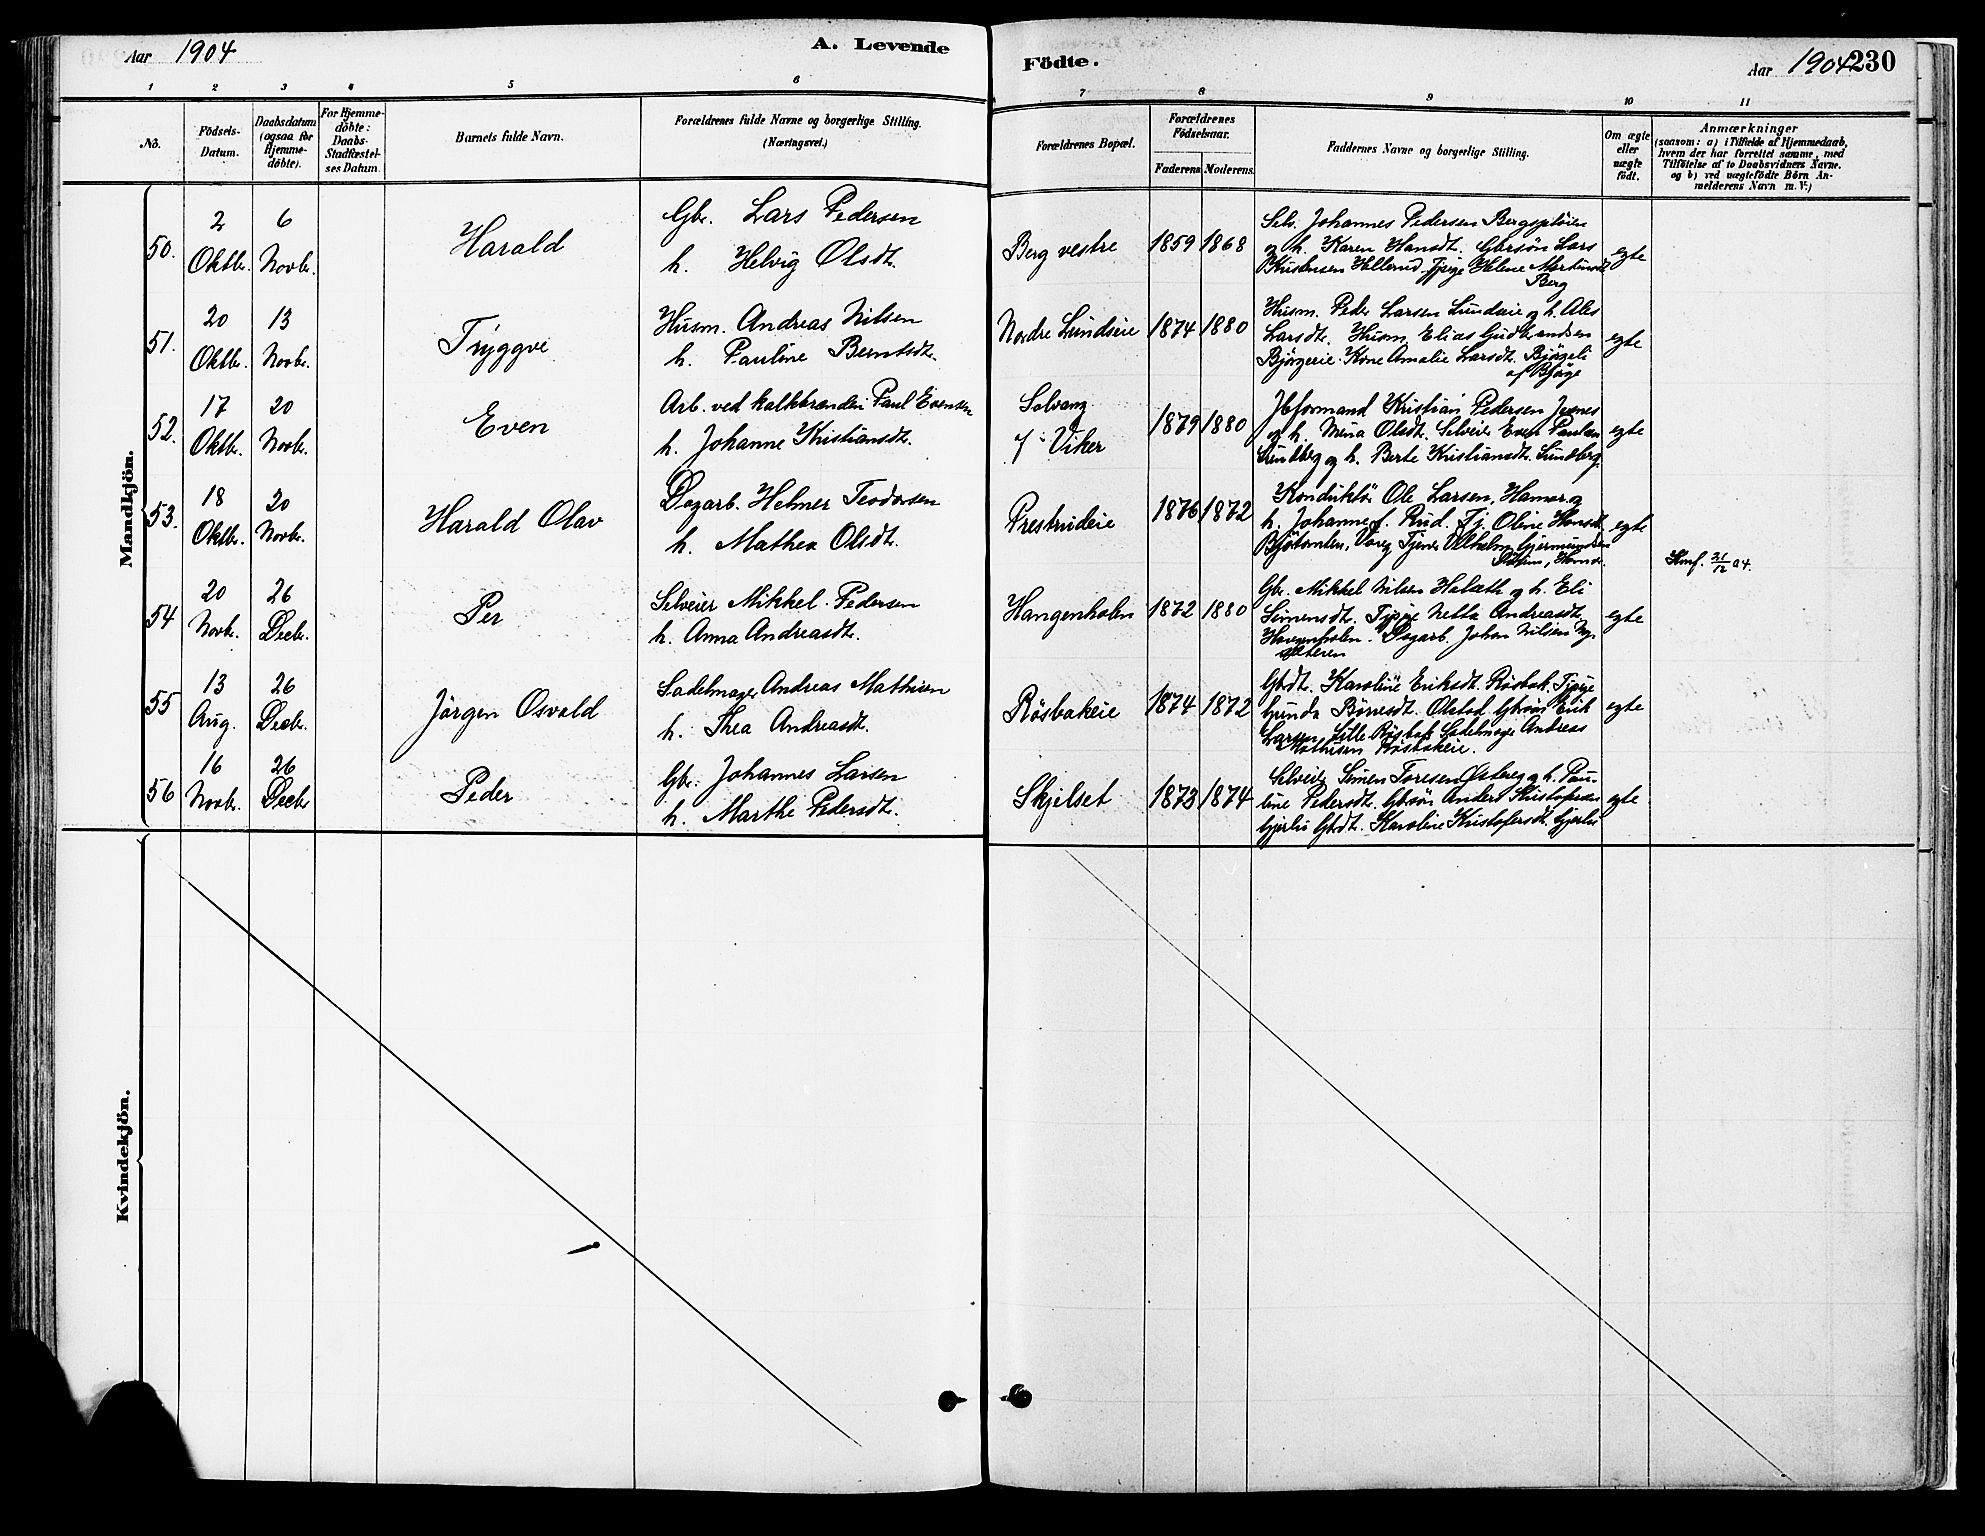 Aar 1904
A. Levende
Födte.
Aar 1904
230
1 2 3 4 5 6
7 8 9 10 11
No.
Födsels-
Datum.
Daabsdatum
(ogsaa for
Hjemme-
döbte).
For Hjemme-
döbte:
Daabs-
Stadfæstel-
ses Datum.
Barnets fulde Navn.
Forældrenes fulde Navne og borgerlige Stilling.
(Næringsvei.)
Forældrenes Bopæl.
Forældrenes
Födselsaar.
Faderens Moderens.
Faddernes Navne og borgerlige Stilling.
Om ægte
eller
uægte
födt.
Anmærkninger
(saasom: a) i Tilfælde af Hjemmedaab,
hvem der har forrettet samme, med
Tilföielse af to Daabsvidners Navne.
og b) ved uægtefödte Börn An-
melderens Navn m. V.)
Mandkjön.
50.
2
Oktbr.
6
Novbr.
Harald
Gbr. Lars Pedersen
h. Helvig Olsdt.
Berg vestre
1859 1868
Selv. Johannes Pedersen
og h. Karen Hansdt. Gbrsøn Lars
Kristensen Hellerud. Tjpige Helene
Berg
egte
51.
20
Oktbr.
13
Novbr.
Tryggve
Husm. Andreas Nilsen
h. Pauline Berntsdt.
Nordre Lundseie
1874 1880
Husm. Peder Larsen Lundseie og h.
Larsdt. Husm. Elias Gudbrandsen
Bjørgeeie. Kone Amalie Larsdt.
af Bjørge
egte
52.
17
Oktbr.
20
Novbr.
Even
Arb. ved kalkbrænderi Paul Evensen
h. Johanne Kristiansdt.
Solvang
Viker
1879 1880
Kristian Pedersen
og h. Mina Olsdt. Selveier Even Paulsen
Sundberg og h. Berte Kristiansdt. Sundberg.
egte
53.
18
Oktbr.
20
Novbr.
Harald Olav
Dagarb. Helmer Teodorsen
h. Mathea Olsdt.
Prestrudeie
1876 1872
Konduktør Ole Larsen, Hamar og
h. Johanne f. Rud. Tj. Oline Hansdt.
Vang Tjener Vilhelm Gjermundsen
egte
Konf. 21/12 04.
54
20
Novbr.
26
Decbr.
Per
Selveier Mikkel Pedersen
h. Anna Andreasdt.
Hangenholen
1872 1880
Gbr. Mikkel Nilsen og h. Eli
Simensdt. Tjpige Netta Andreasdt.
Dagarb. Johan Nilsen Ny-
sæteren
egte
55
13
Aug.
26
Decbr.
Jørgen Osvald
Sadelmager Andreas Mathisen
h. Thea Andreasdt.
Røsbakeie
1874 1872
Gbdt. Karoline Eriksdt. Røsbak. Tjpige
Gunda Børresdt. Olstad Gbrsøn Erik
Larsen Lille Røsbak Sadelmager Andreas
Mathisen Røsbakeie.
egte
56
16
Novbr.
26
Decbr
Peder
Gbr. Johannes Larsen
h. Marthe Pedersdt.
Skjelset
1873 1874
Selveier Simen Toresen og h. Pau-
line Pedersdt. Gbrsøn Anders Kristofersen
Gjerlu Gbdt. Karoline Kristofersdt. Gjerlu
egte
Kvindekjön.